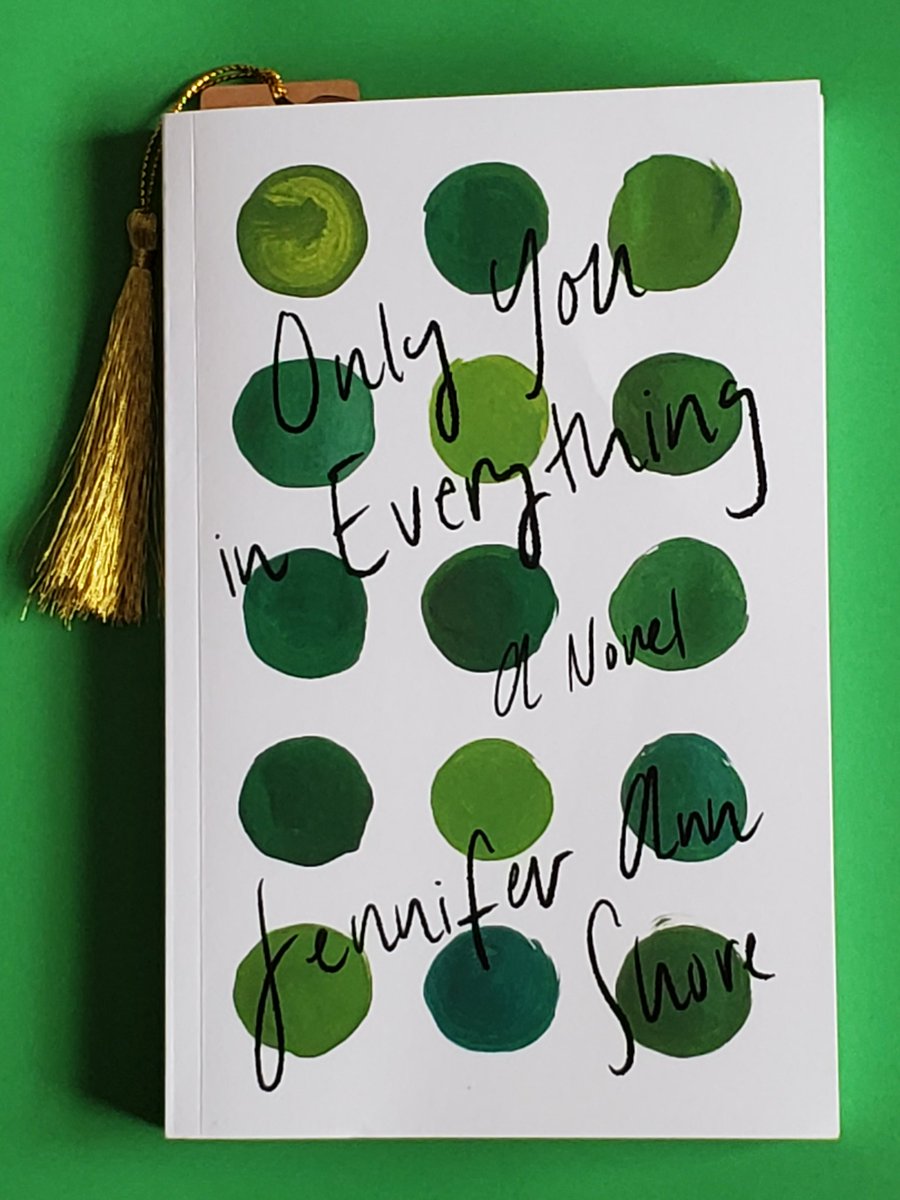 Only You
in Everything
a Novel
Jennifer Ann
Shore